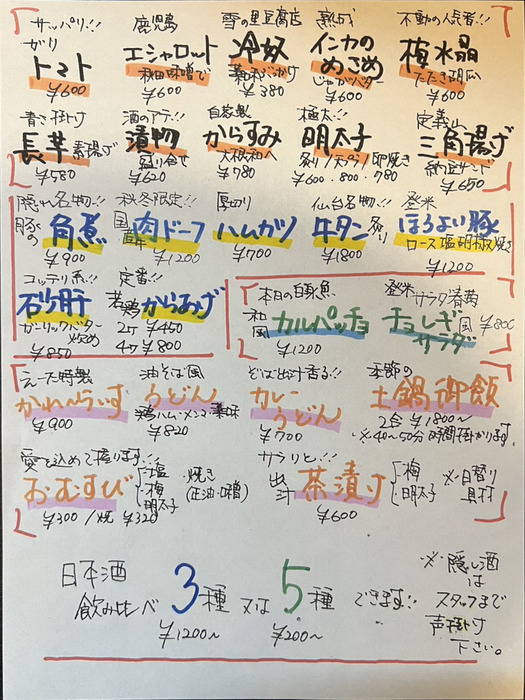 サッパリ!! 鹿児島 雪の里豆腐店 熟成 不動の人気者!!
ガリ トマト エシャロット 冷奴 インカのめざめ 梅水晶
秋田味噌で 薬味ぶっかけ じゃがバター たたき胡瓜
¥600 ¥600 ¥380 ¥600 ¥600
青さ掛け 酒のアテ!! 自家製 極太!! 定義山
長芋 素揚げ 漬物 からすみ 明太子 三角揚げ
盛り合せ 大根和へ 炙り/天プラ/卵焼き 納豆サンド
¥580 ¥620 ¥780 ¥600・800・780 ¥650
隠れ名物!! 秋冬限定!! 厚切り 仙台名物!! 登米
豚の角煮 国産牛 肉ドーフ ハムカツ 牛タン 炙り ほろよい豚
ロース塩胡椒焼き
¥900 ¥1200 ¥700 ¥1800 ¥1200
コッテリ系!! 定番!!
砂肝 若鶏からあげ
ガーリックバター炒め 2ヶ ¥450
¥850 4ヶ ¥800
本日の白身魚 登米サラダ春菊
和風 カルパッチョ チョレギサラダ
¥1200 ¥800
えーた特製 油そば風 そば出汁香る!! 季節の
かれーらいす うどん カレーうどん 土鍋御飯
鶏ハム・メンマ・薬味 2合 ¥1800〜
¥900 ¥820 ¥700 ※40〜50分お時間掛かります。
愛を込めて握ります!! サラリと!!
おむすび 塩・梅・明太子 焼き(正油・味噌) 出汁 茶漬け 梅・明太子 ※日替り具材
¥300/焼 ¥320 ¥600
日本酒
飲み比べ 3種 又は 5種 できます!!
¥1200〜 ¥200〜
※隠し酒
は
スタッフまで
声掛け
下さい。